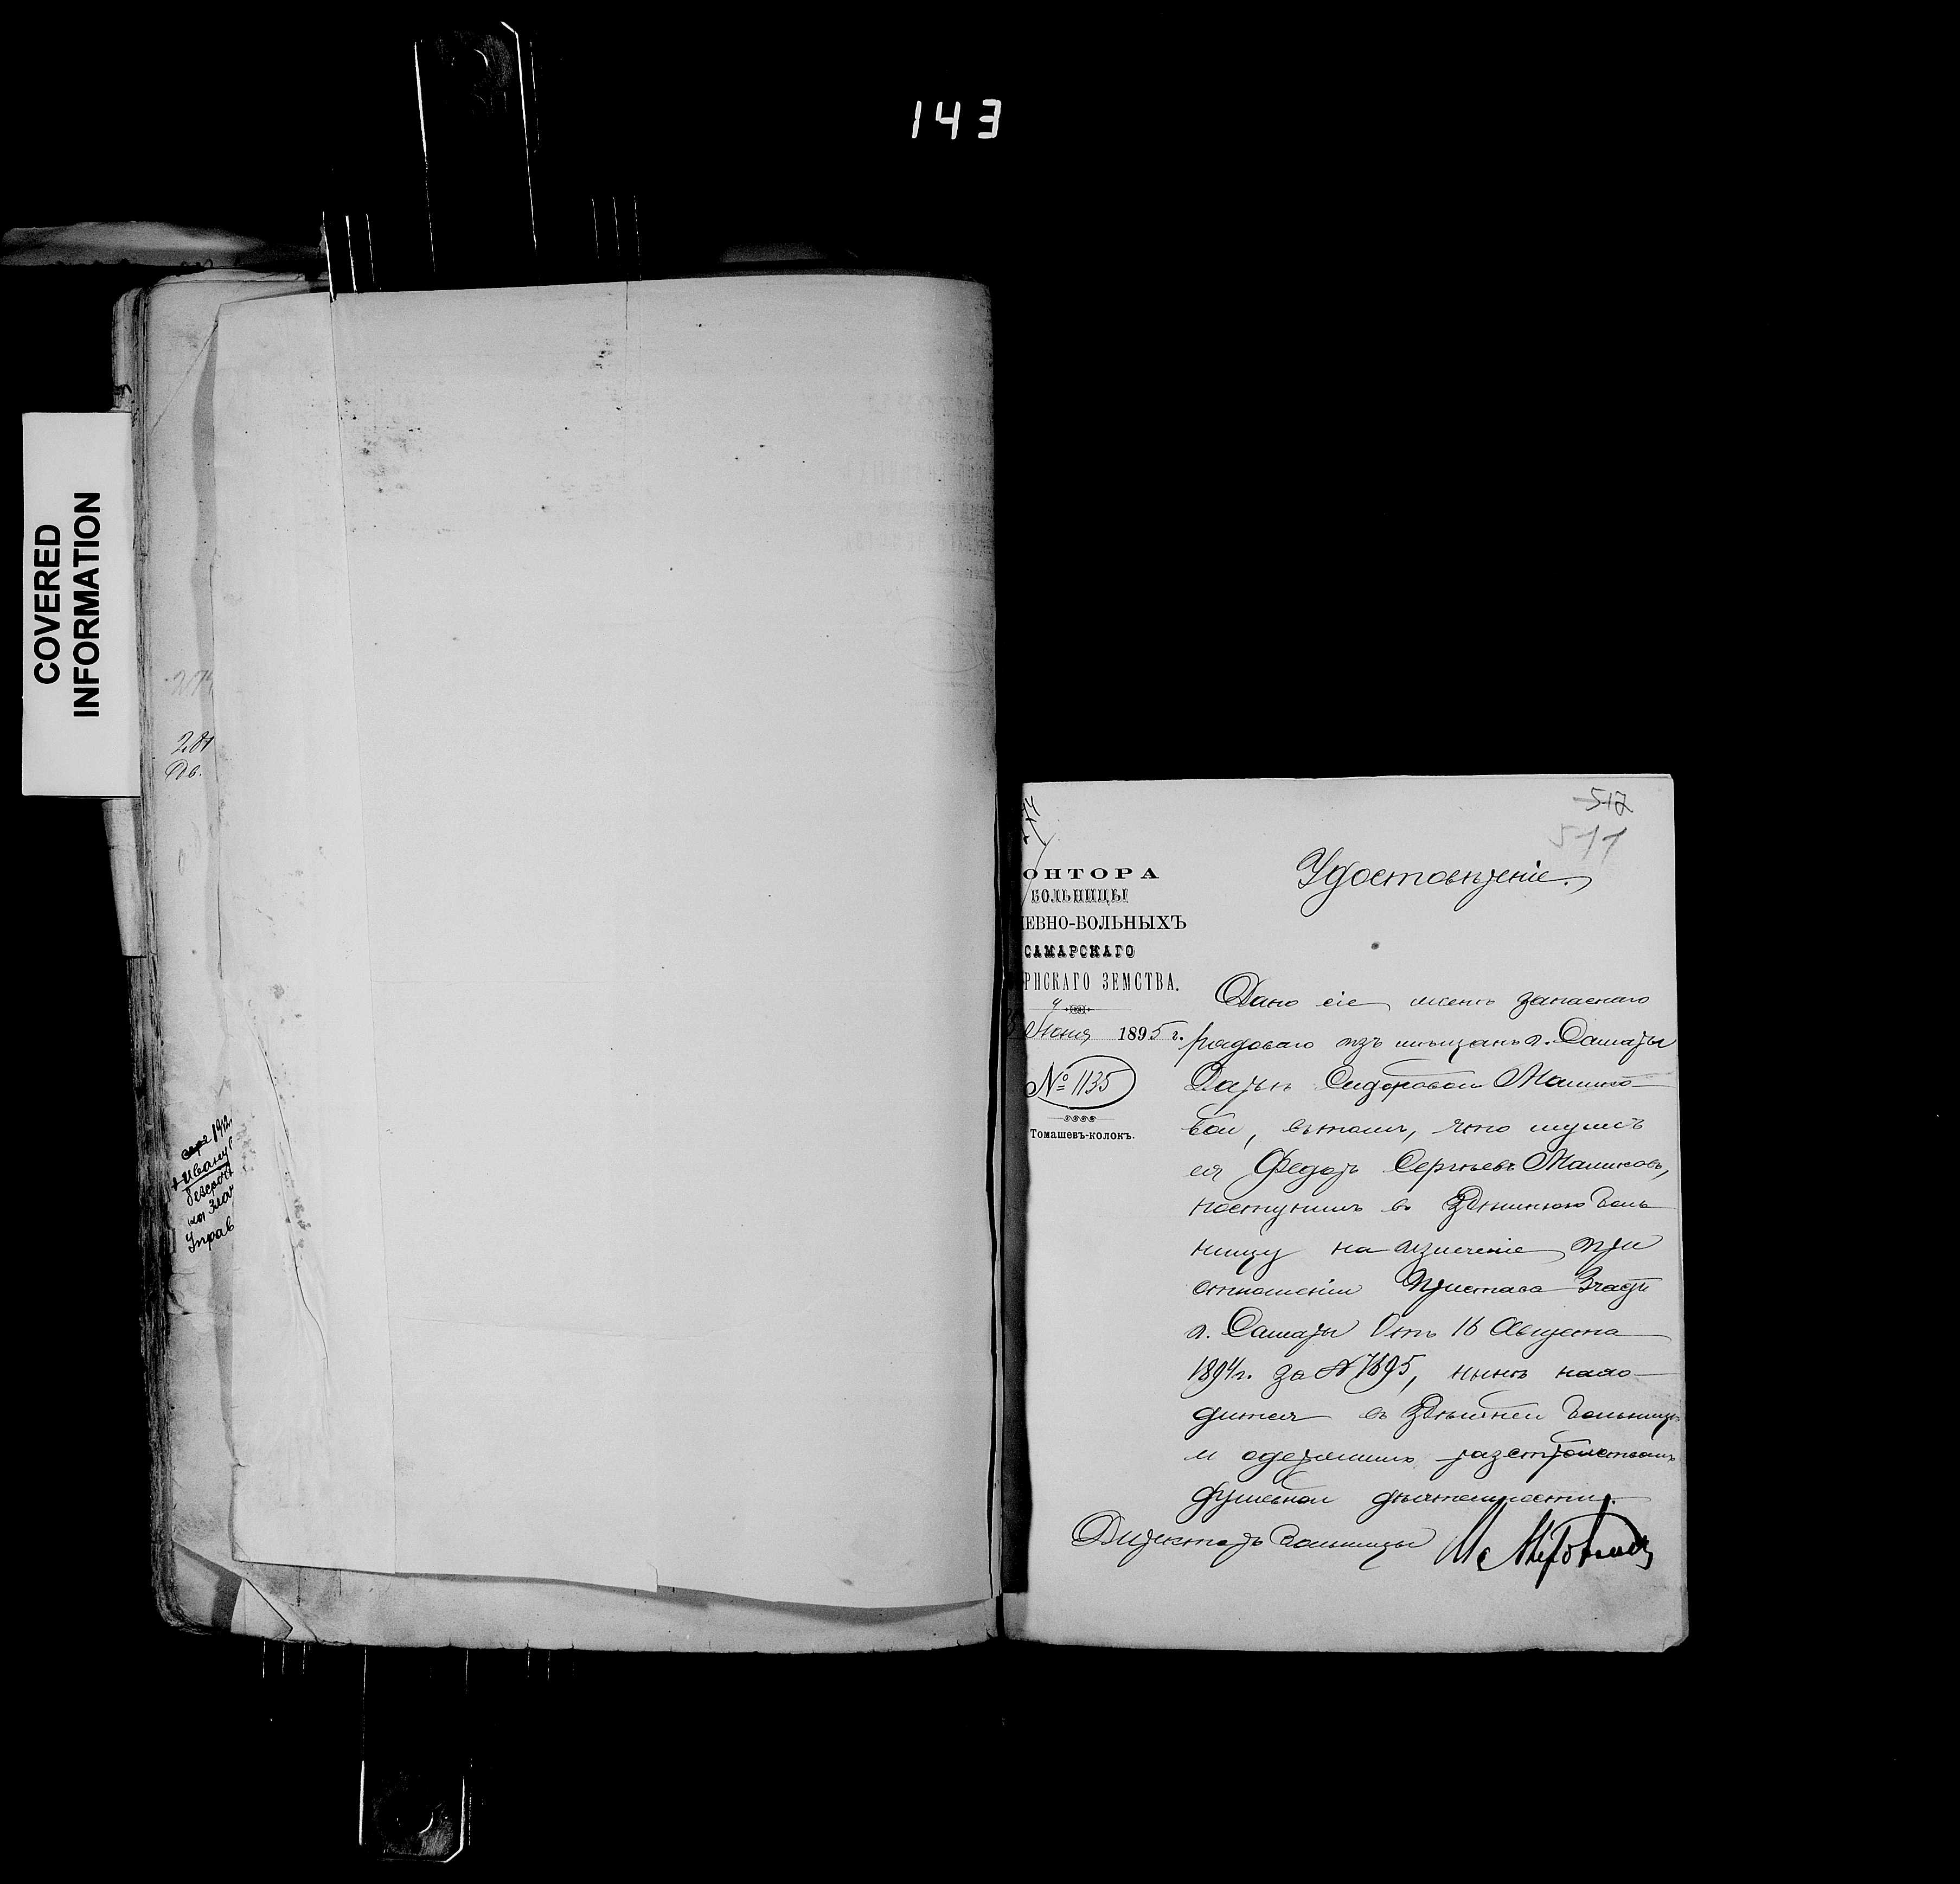 143
COVERED
INFORMATION
281
1912
+ Ивану
Управ
512
511
ОНТОРА
БОЛЬНИЦЫ
ЕВНО-БОЛЬНЫХЪ
САМАРСКАГО
РНСКАГО ЗЕМСТВА.
Июня 1895 г.
№ 1135
Томашевъ-колокъ.
Удостовѣреніе.
Дано сіе женѣ запаснаго
рядоваго изъ мѣщанъ г. Самары
Дарьѣ Сидоровой Малико-
вой, въ томъ, что мужъ
ея Федоръ Сергѣевъ Маликовъ,
поступилъ въ здѣшнюю боль
ницу на излеченіе при
отношеніи Пристава 3 части
г. Самары отъ 16 Августа
1894 г. за № 7695, нынѣ нахо-
дится въ здѣшней больницѣ
и одержимъ разстройствомъ
душевной дѣятельности.
Директоръ больницы